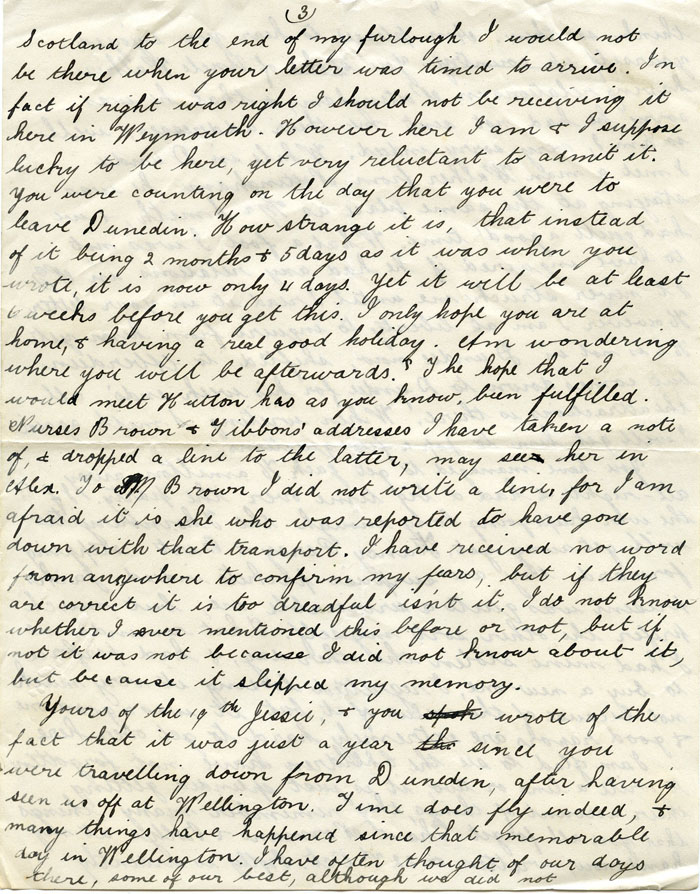 3
Scotland to the end of my furlough I would not
be there when your letter was timed to arrive. In
fact if right was right I should not be receiving it
here in Weymouth. However here I am & I suppose
lucky to be here, yet very reluctant to admit it.
You were counting on the day that you were to
leave Dunedin. How strange it is, that instead
of it being 2 months & 5 days as it was when you
wrote, it is now only 4 days. Yet it will be at least
6 weeks before you get this. I only hope you are at
home, & having a real good holiday. Am wondering
where you will be afterwards. The hope that I
would meet Hutton has as you know, been fulfilled.
Nurses Brown & Gibbons' addresses I have taken a note
of, & dropped a line to the latter, may see her in
Alex. To M Brown I did not write a line, for I am
afraid it is she who was reported to have gone
down with that transport. I have received no word
from anywhere to confirm my fears, but if they
are correct it is too dreadful isn't it. I do not know
whether I ever mentioned this before or not, but if
not it was not because I did not know about it,
but because it slipped my memory.
Yours of the 19th Jessie, & you wrote of the
fact that it was just a year since you
were travelling down from Dunedin, after having
seen us off at Wellington. Time does fly indeed, &
many things have happened since that memorable
day in Wellington. I have often thought of our days
there, some of our best, although we did not